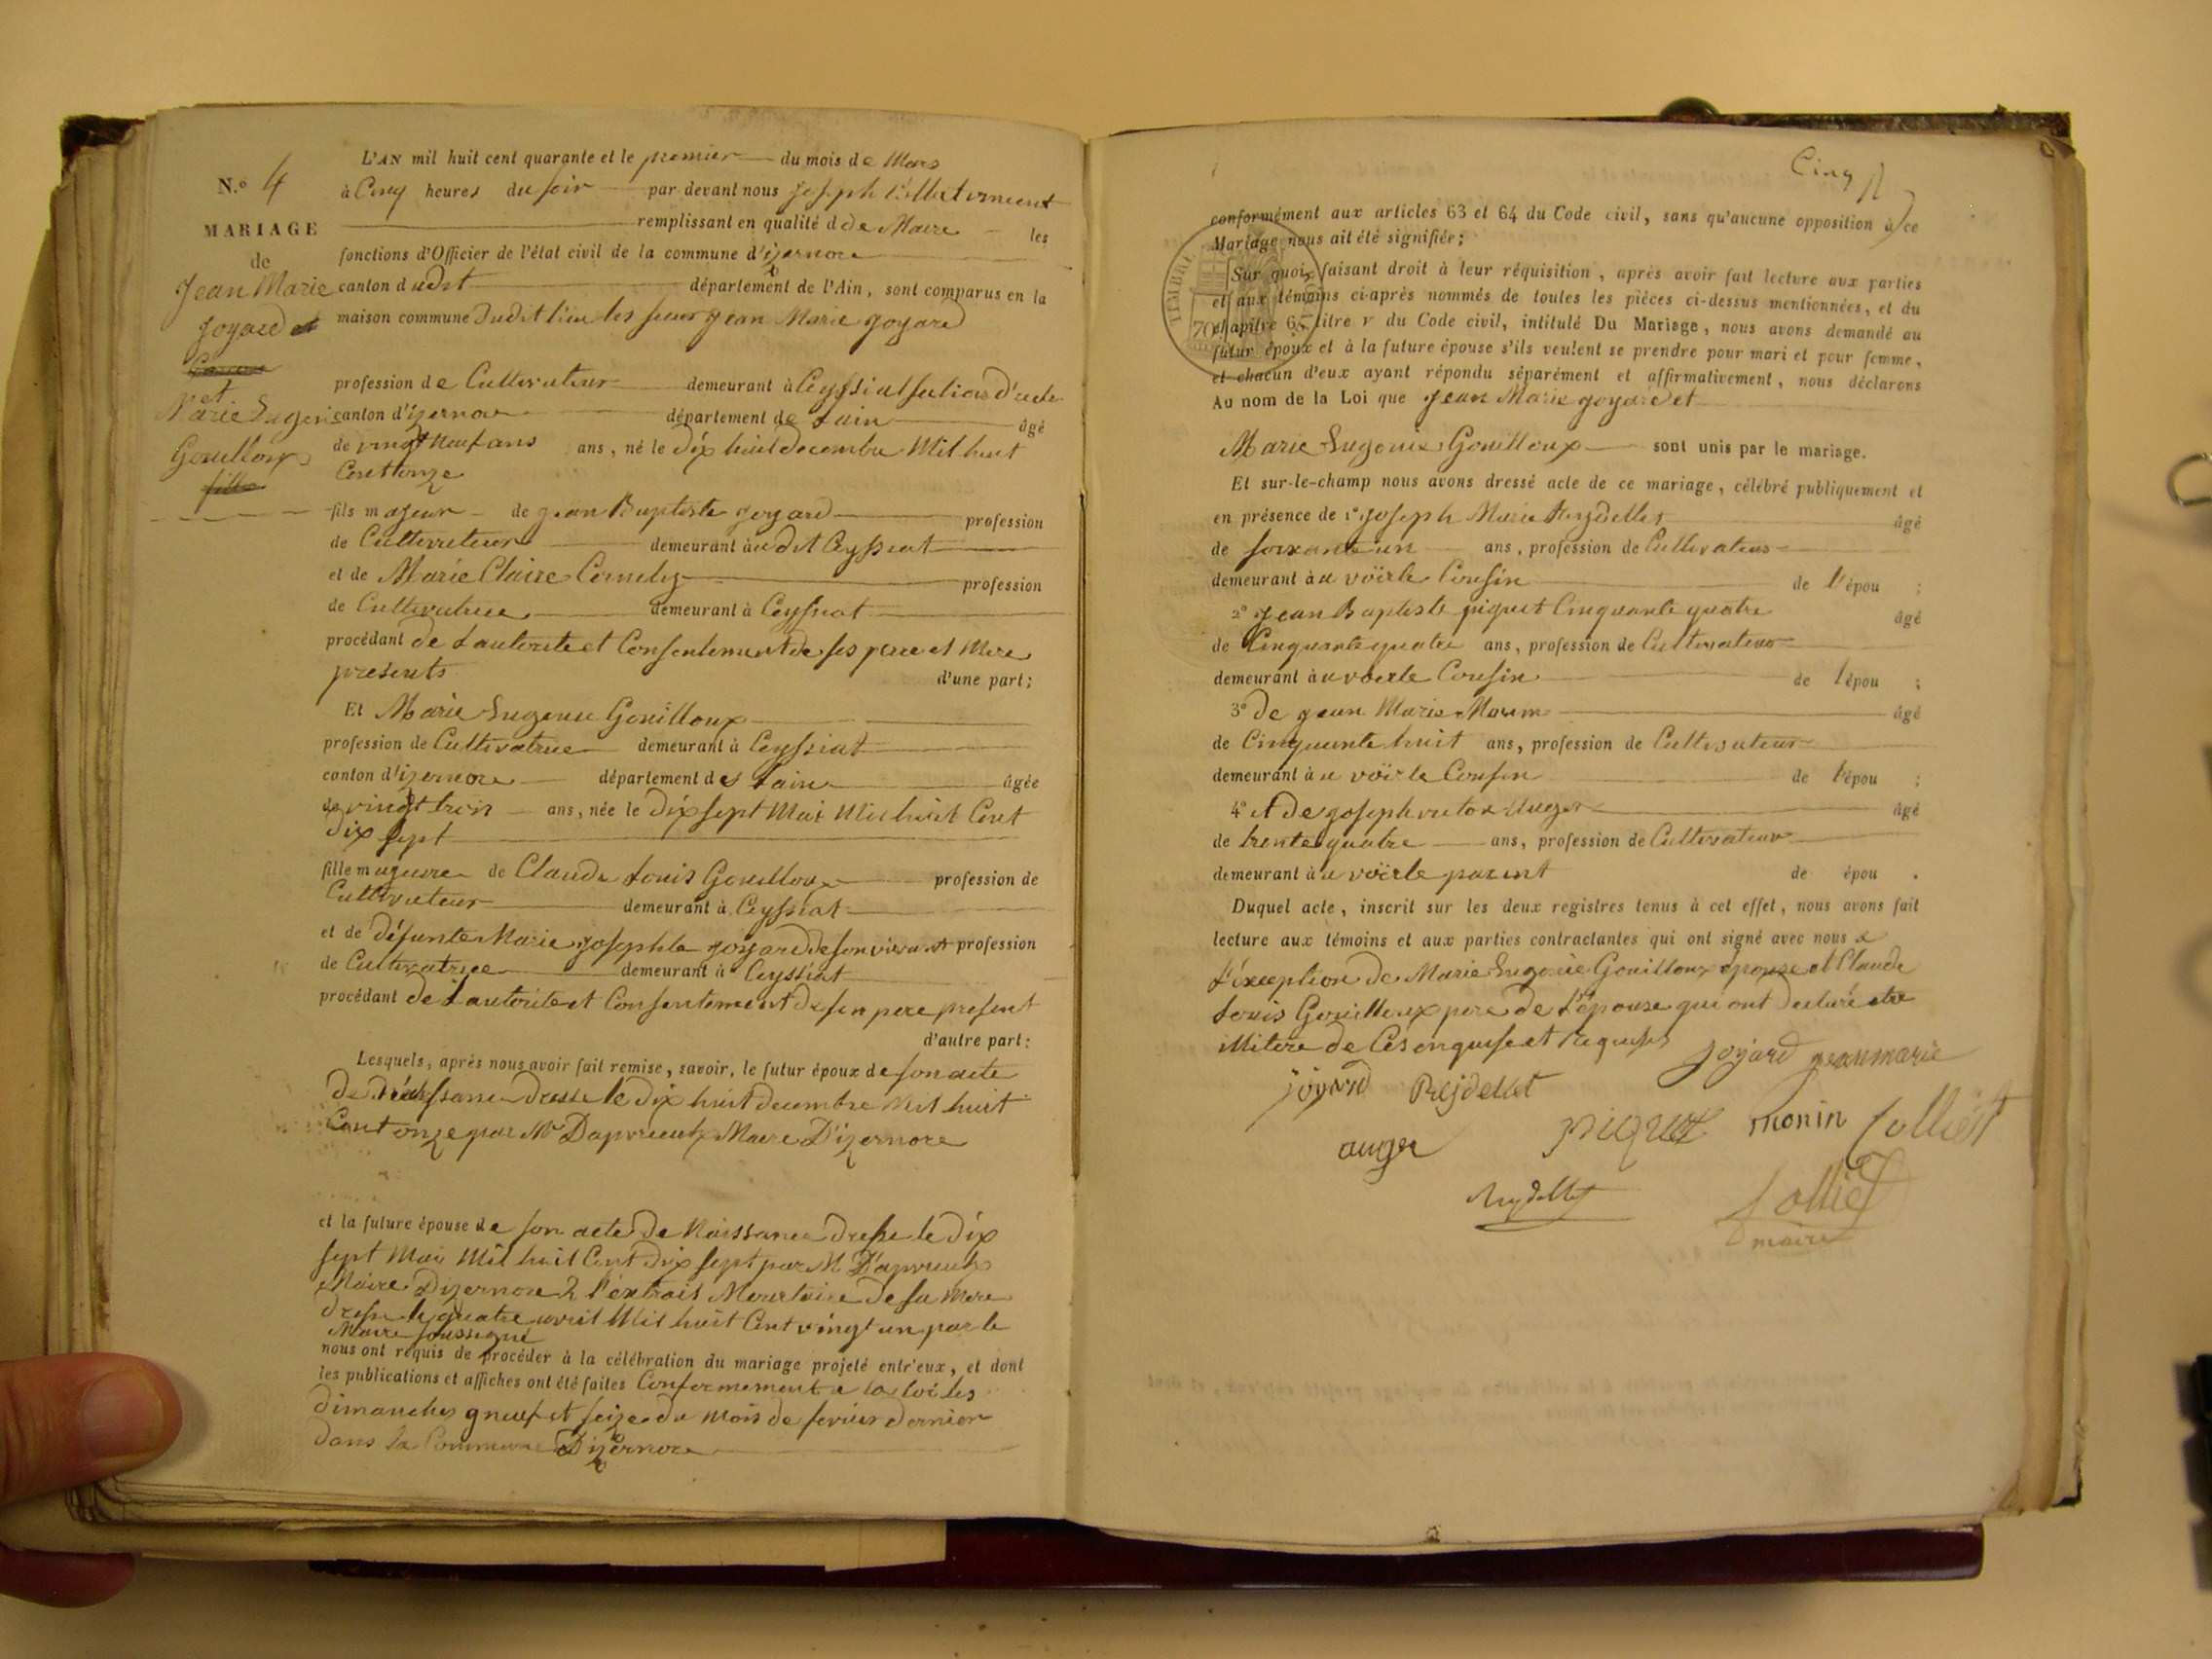 N.° 4
MARIAGE
de
Jean Marie
Joyard et
et
Marie Eugenie
Gouilloux
L'AN mil huit cent quarante et le premier du mois de Mars
à Cinq heures du soir par devant nous Joseph
remplissant en qualité d de Maire les
fonctions d'Officier de l'état civil de la commune d'izernore
canton dudit département de l'Ain, sont comparus en la
maison commune dudit lieu les sieur Jean Marie Joyard
profession de Cultivateur demeurant à Ceyssiat
canton d'izernore département de Lain âgé
de vingt neuf ans ans, né le dix huit decembre Mil huit
Cent onze
fils majeur de Jean Baptiste Joyard profession
de Cultivateur demeurant audit Ceyssiat
et de Marie Claire profession
de Cultivatrice demeurant à Ceyssiat
procédant de Lautorité et Consentement de ses pere et Mere
presents d'une part;
Et Marie Eugenie Gouilloux
profession de Cultivatrice demeurant à Ceyssiat
canton d'izernore département de Lain âgée
de vingt trois ans, née le dix sept Mai Mil huit Cent
dix sept
fille mageure de Claude Louis Gouilloux profession de
Cultivateur demeurant à Ceyssiat
et de défunte Marie Josephte Joyard de son vivant profession
de Cultivatrice demeurant à Ceyssiat
procédant de Lautorité et Consentement de son pere present
d'autre part:
Lesquels, après nous avoir fait remise, savoir, le futur époux de son acte
de naissance dressé le dix huit decembre Mil huit
Cent onze par Mr Dapvrieux Maire D'izernore
et la future épouse de son acte de Naissance dressé le dix
sept Mai Mil huit Cent dix sept par M Dapvrieux
Maire Dizernore & l'extrait Mourtuire de sa Mere
dressé le quatre avril Mil huit Cent vingt un par le
Maire soussigné
nous ont requis de procéder à la célébration du mariage projeté entr'eux, et dont
les publications et affiches ont été faites Conformement a la loi les
dimanches neuf et seize du mois de fevrier dernier
dans la Commune Dizernore
Cinq
conformément aux articles 63 et 64 du Code civil, sans qu'aucune opposition à ce
Mariage nous ait été signifiée;
TIMBRE
70
Sur quoi, faisant droit à leur réquisition, après avoir fait lecture aux parties
et aux témoins ci-après nommés de toutes les pièces ci-dessus mentionnées, et du
chapitre 65 titre v du Code civil, intitulé Du Mariage, nous avons demandé au
futur époux et à la future épouse s'ils veulent se prendre pour mari et pour femme,
et chacun d'eux ayant répondu séparément et affirmativement, nous déclarons
Au nom de la Loi que Jean Marie Joyard et
Marie Eugenie Gouilloux sont unis par le mariage.
Et sur-le-champ nous avons dressé acte de ce mariage, célébré publiquement et
en présence de 1° Joseph Marie Reydellet âgé
de soixante un ans, profession de Cultivateur
demeurant à u voërle Cousin de l'épou ;
2° Jean Baptiste piquet Cinquante quatre âgé
de Cinquante quatre ans, profession de Cultivateur
demeurant à u voërle Cousin de l'épou ;
3° De Jean Marie Monin âgé
de Cinquante huit ans, profession de Cultivateur
demeurant à u voërle Cousin de l'épou ;
4° et de Joseph victor Auger âgé
de trente quatre ans, profession de Cultivateur
demeurant à u voërle parent de épou .
Duquel acte, inscrit sur les deux registres tenus à cet effet, nous avons fait
lecture aux témoins et aux parties contractantes qui ont signé avec nous a
L'éxception de Marie Eugenie Gouilloux épouse et Claude
Louis Gouilloux pere de L'épouse qui ont declaré etre
illitere de Ces enquise et requises
Joyard jeanmarie
joyard Reydellet
auger piquet monin Lolliet
Reydellet Lolliet
maire